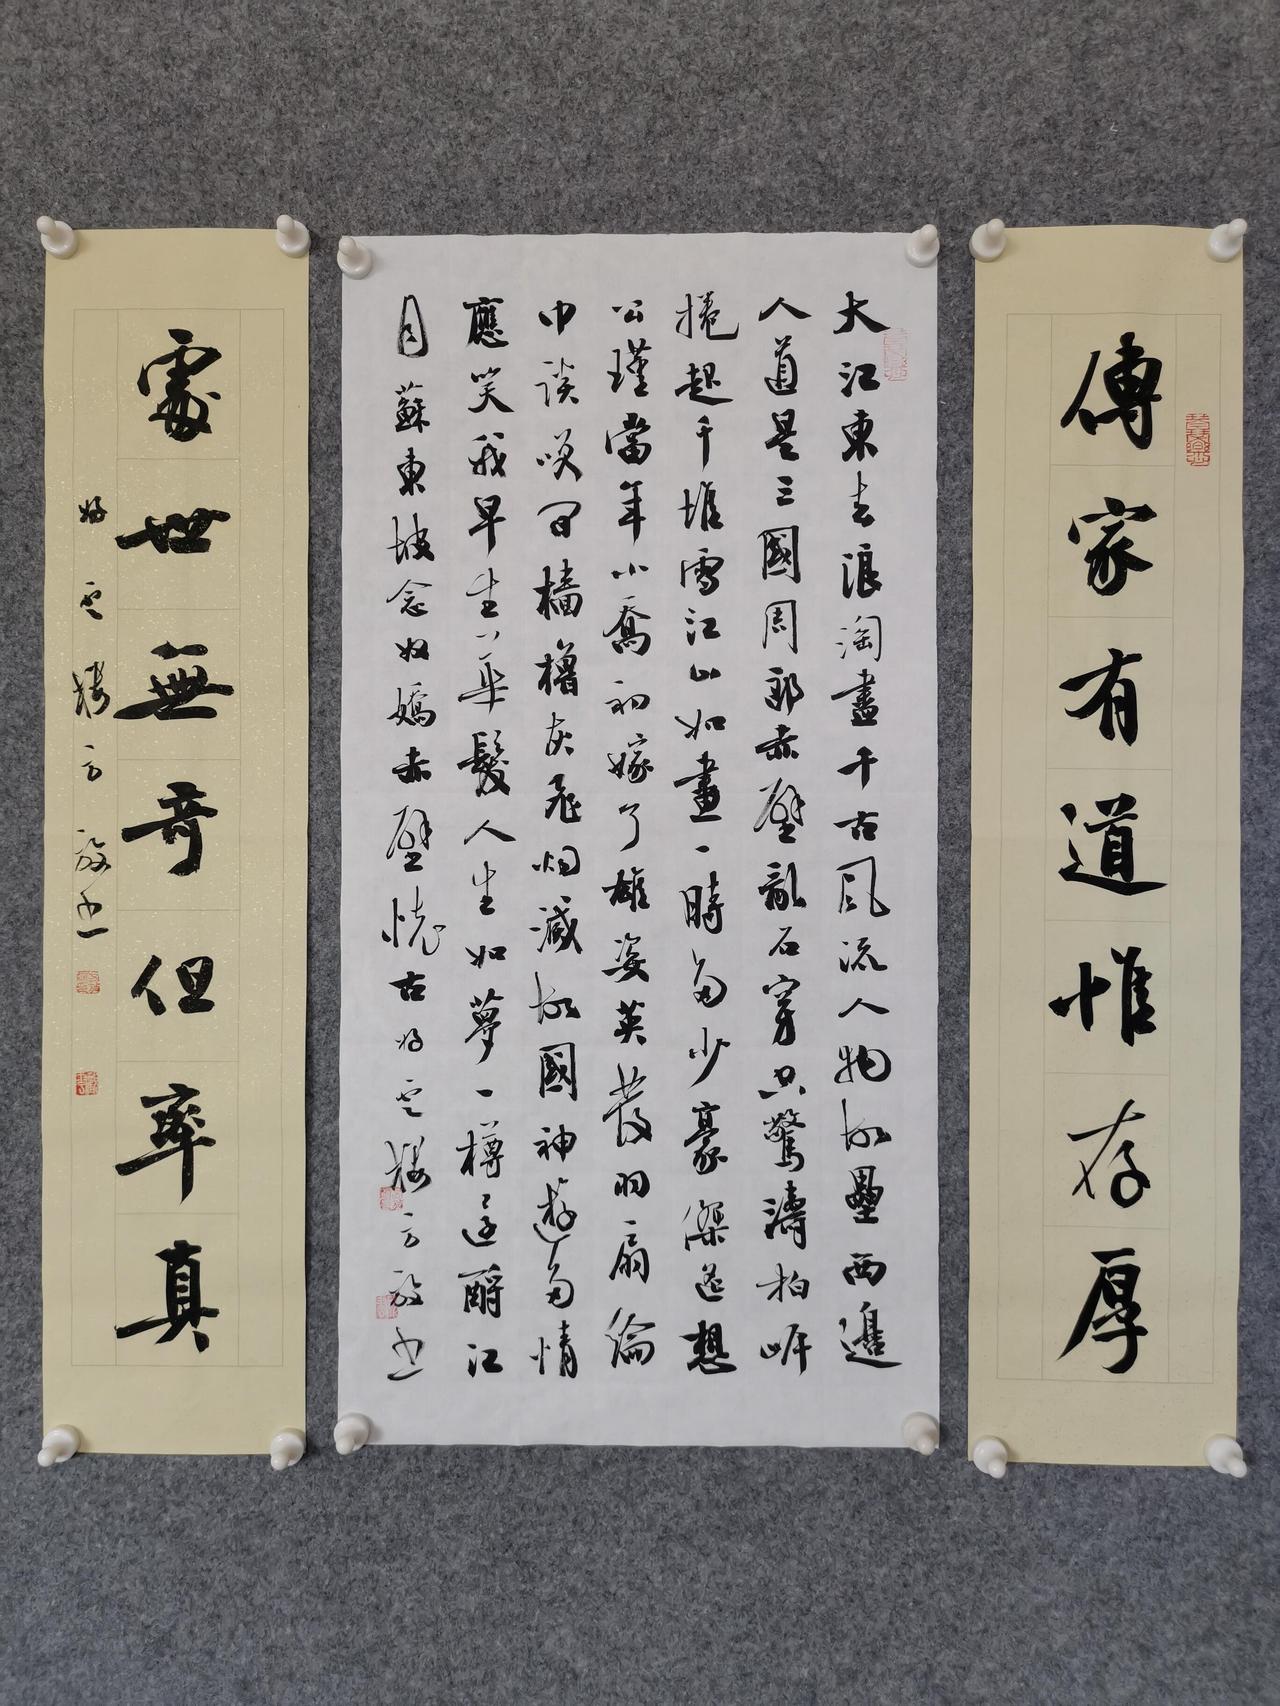 傳家有道惟存厚
大江東去浪淘盡千古風流人物故壘西邊
人道是三國周郎赤壁亂石穿空驚濤拍岸
捲起千堆雪江山如畫一時多少豪傑遙想
公瑾當年小喬初嫁了雄姿英發羽扇綸
巾談笑間檣櫓灰飛烟滅故國神遊多情
應笑我早生華髮人生如夢一樽還酹江
月蘇東坡念奴嬌赤壁懷古好雲樓方書
處世無奇但率真
好雲樓方書